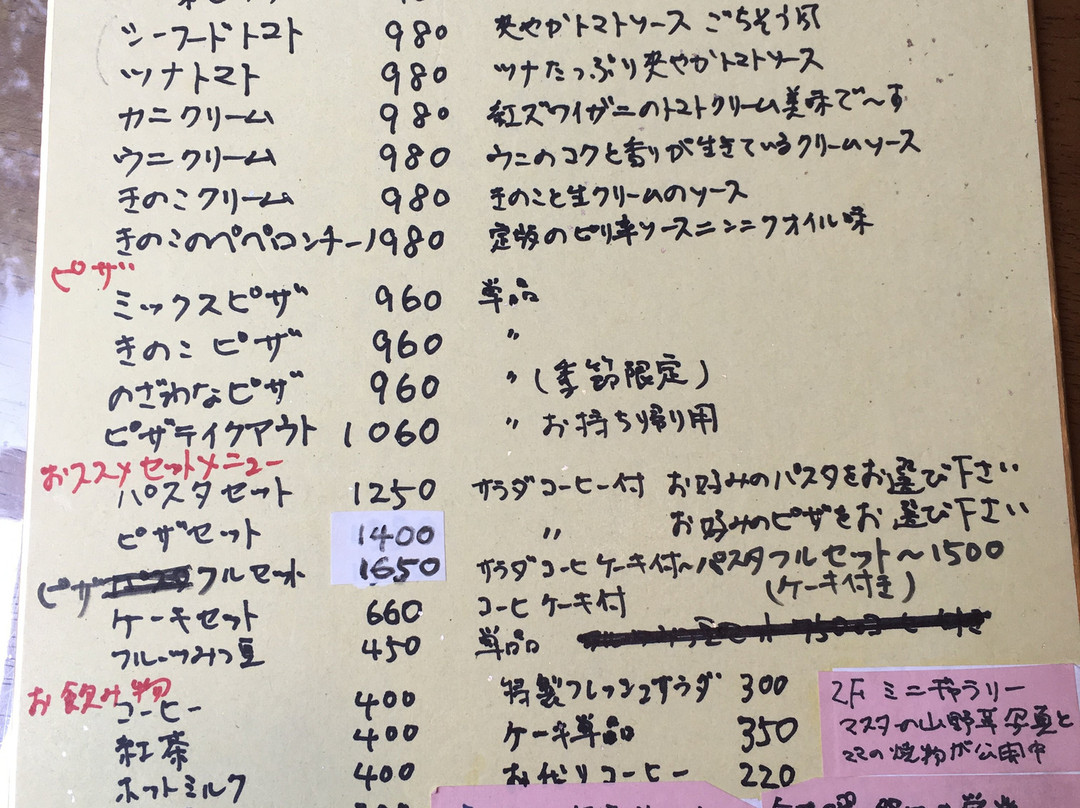 シーフードトマト 980 爽やかトマトソース ごちそう風
ツナトマト 980 ツナたっぷり爽やかトマトソース
カニクリーム 980 紅ズワイガニのトマトクリーム美味で〜す
ウニクリーム 980 ウニのコクと香りが生きているクリームソース
きのこクリーム 980 きのこと生クリームのソース
きのこのペペロンチーノ 980 定版のピリ辛ソースニンニクオイル味
ピザ
ミックスピザ 960 単品
きのこピザ 960 〃
のざわなピザ 960 〃 (季節限定)
ピザテイクアウト 1060 〃 お持ち帰り用
おススメセットメニュー
パスタセット 1250 サラダコーヒー付 お好みのパスタをお選び下さい
ピザセット 1400 〃 お好みのピザをお選び下さい
(ピザ フルセット 1650 サラダコーヒケーキ付〜パスタフルセット〜1500
(ケーキ付き)
ケーキセット 660 コーヒケーキ付
フルーツみつ豆 450 単品
お飲み物
コーヒー 400 特製フレッシュサラダ 300
紅茶 400 ケーキ単品 350
ホットミルク 400 おかわりコーヒー 220
2F ミニギャラリー
マスタの山野草写真と
ママの焼物が公開中